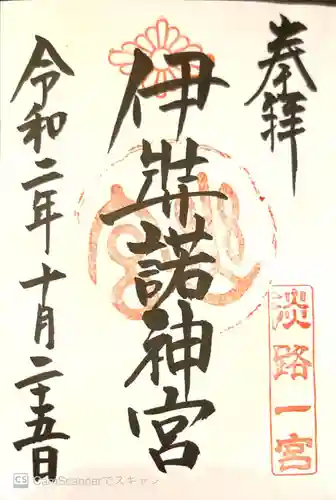 奉拝
淡路一宮
伊弉諾神宮
令和二年十月二十五日
CS CamScannerでスキャン